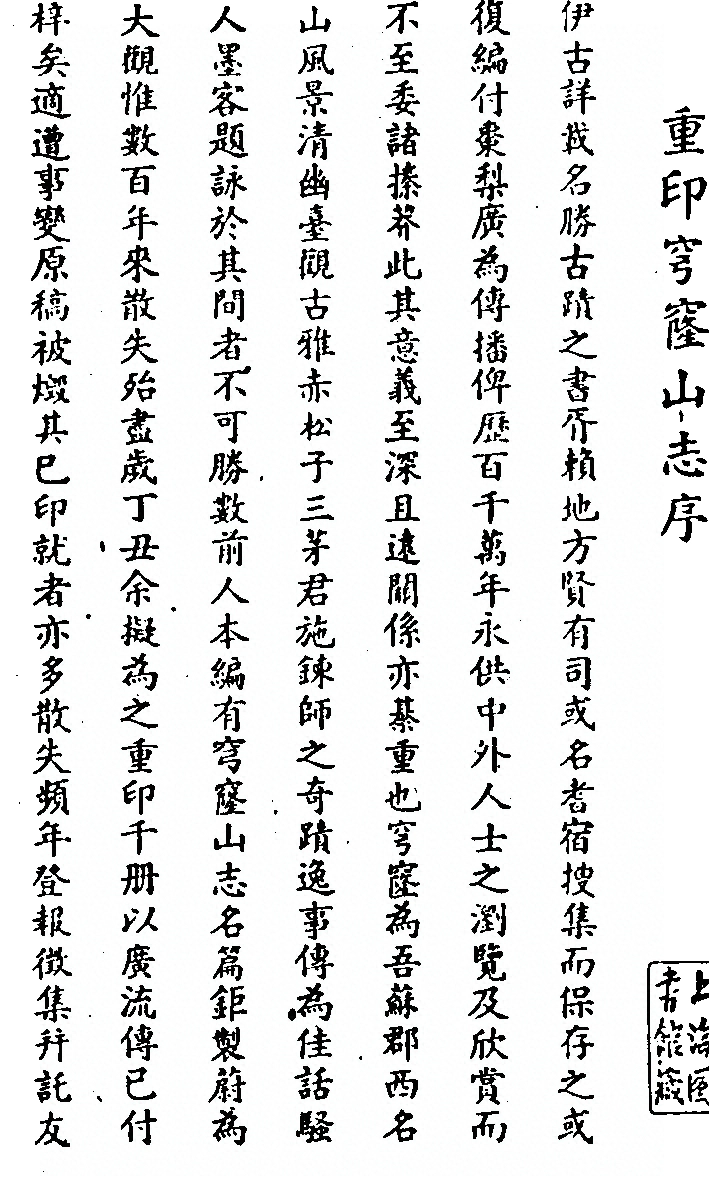 重印穹窿山志序
伊古詳載名勝古蹟之書胥賴地方賢有司或名耆宿搜集而保存之或
復編付棗梨廣為傳播俾歷百千萬年永供中外人士之瀏覽及欣賞而
不至委諸榛莽此其意義至深且遠關係亦綦重也穹窿為吾蘇郡西名
山風景清幽臺觀古雅赤松子三茅君施鍊師之奇蹟逸事傳為佳話騷
人墨客題詠於其間者不可勝數前人本編有穹窿山志名篇鉅製蔚為
大觀惟數百年來散失殆盡歲丁丑余擬為之重印千册以廣流傳已付
梓矣適遭事變原稿被燬其已印就者亦多散失頻年登報徵集并託友
上海圖
書館藏